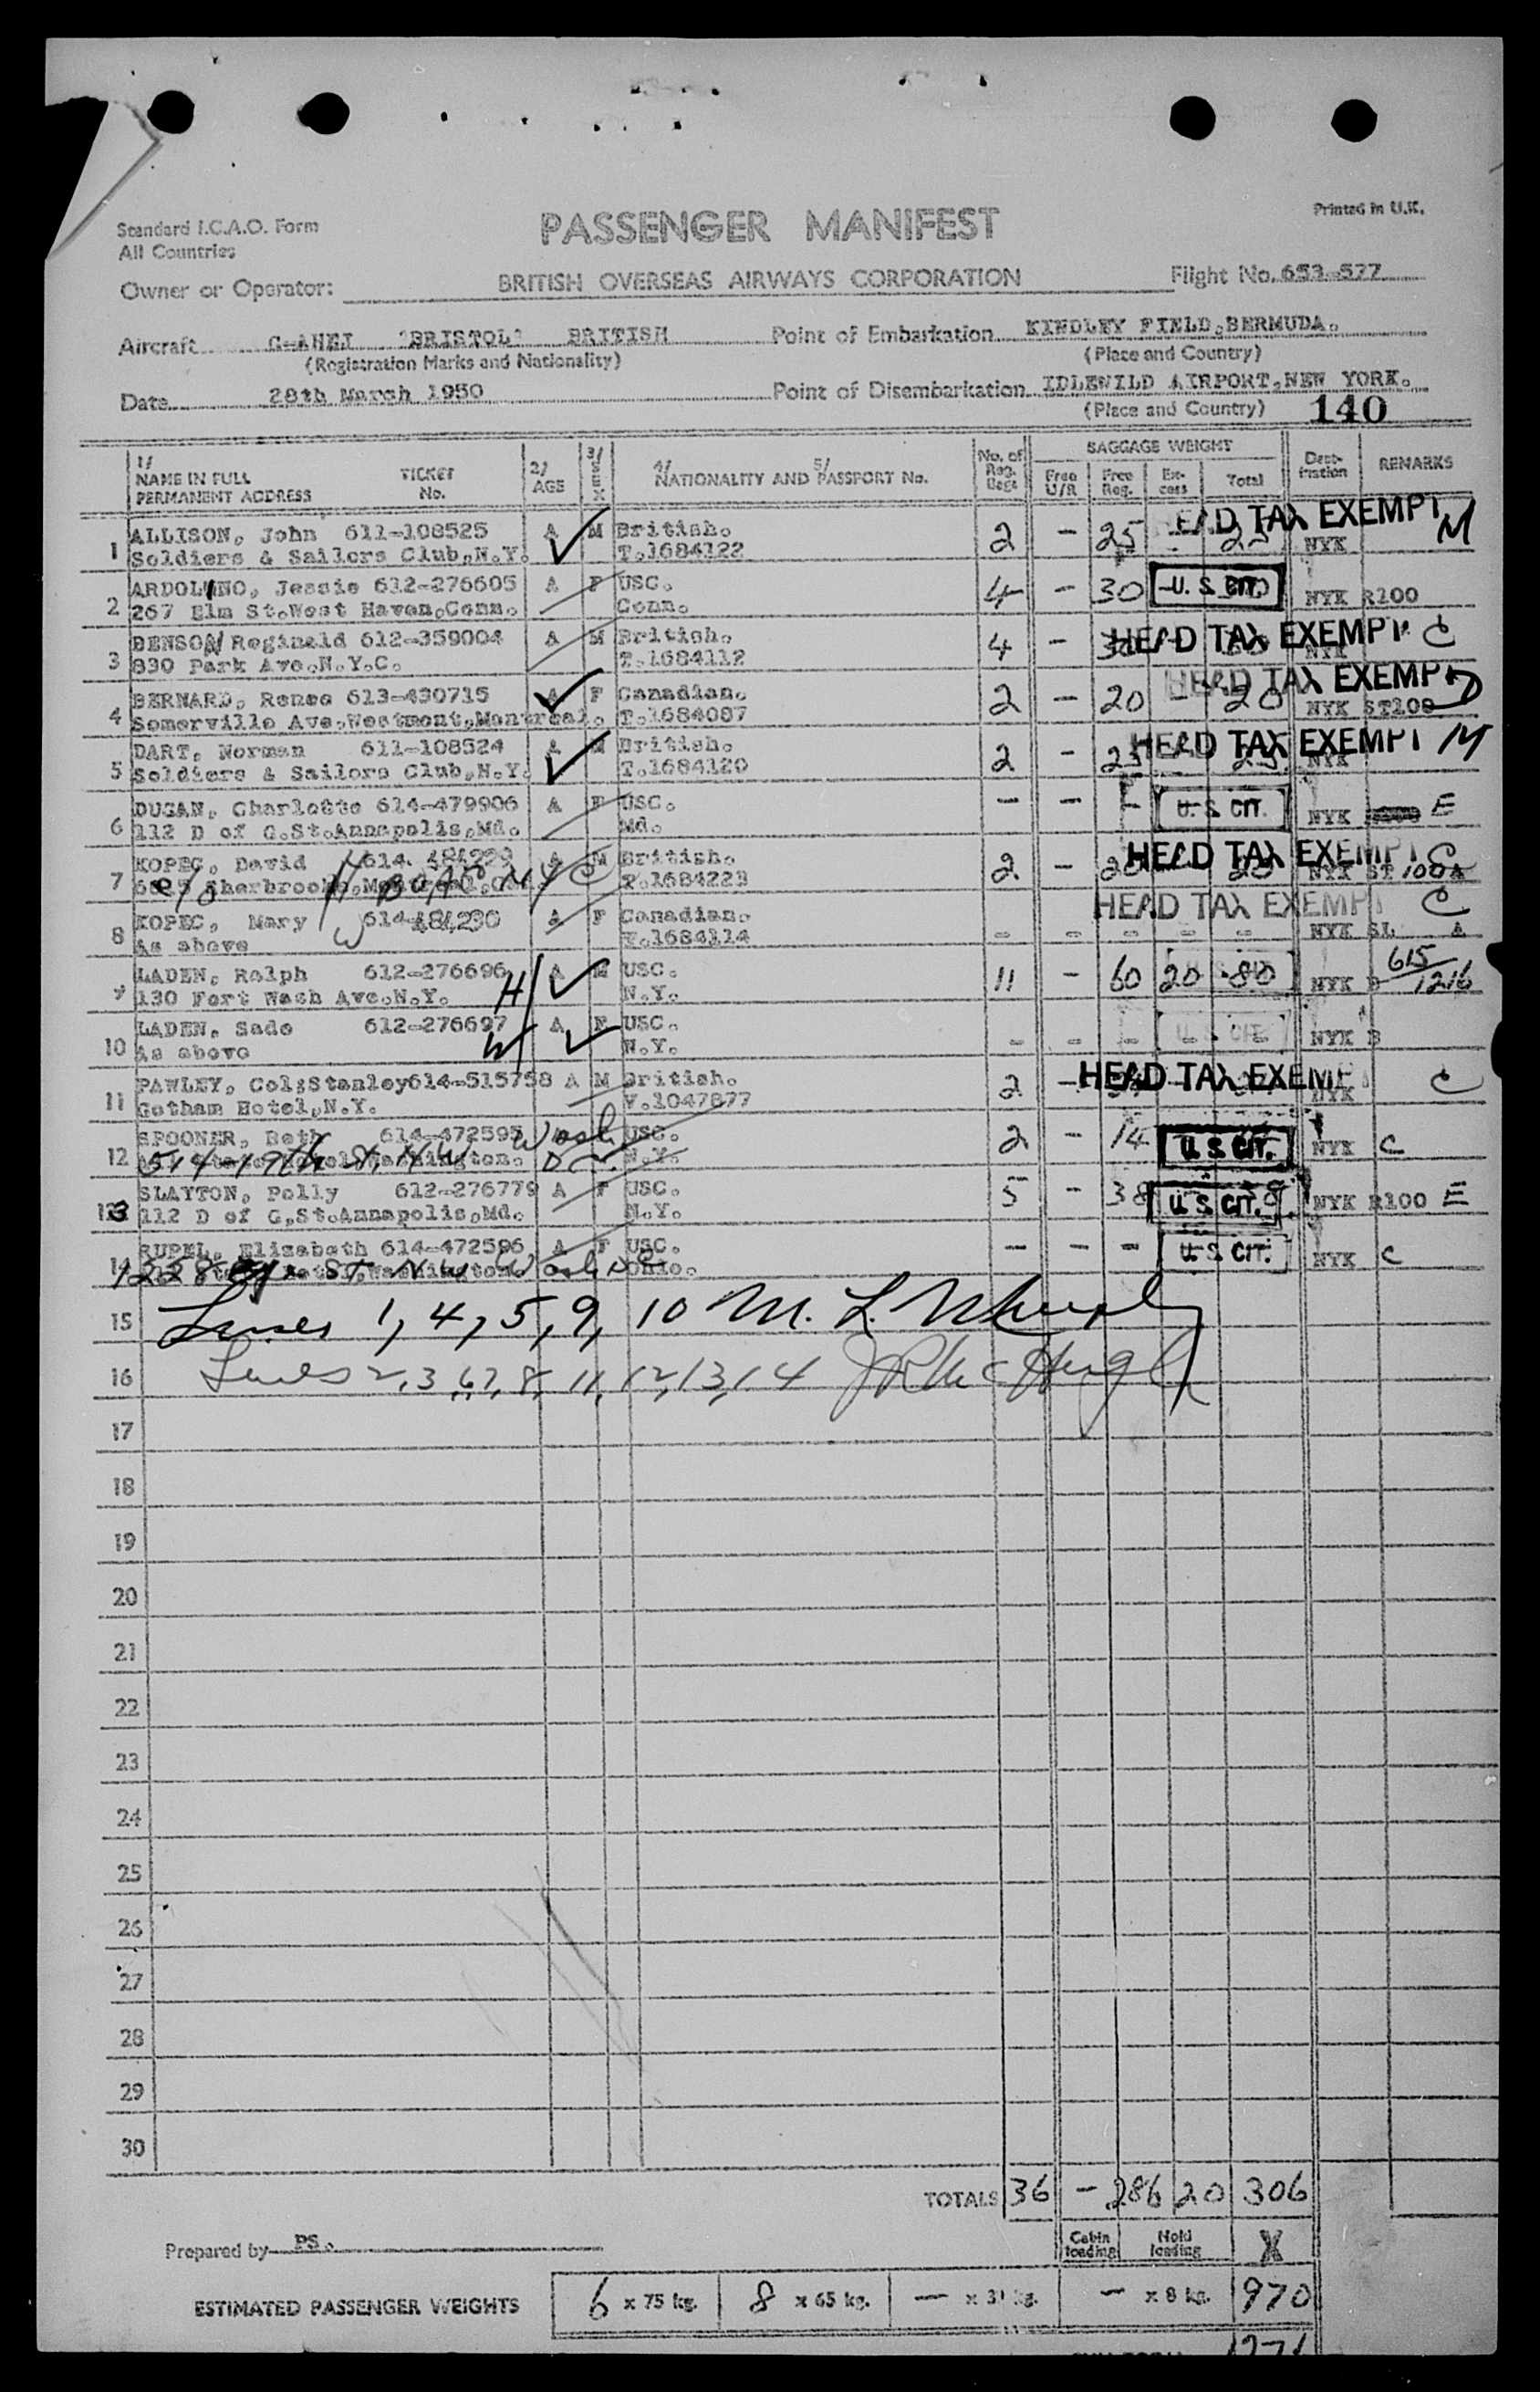 Standard I.C.A.O. Form
All Countries
PASSENGER MANIFEST
Printed in U.K.
Owner or Operator: BRITISH OVERSEAS AIRWAYS CORPORATION Flight No. 653-577
Aircraft G-AHEJ 'BRISTOL' BRITISH Point of Embarkation KINDLEY FIELD, BERMUDA.
(Registration Marks and Nationality) (Place and Country)
Date 28th March 1950 Point of Disembarkation IDLEWILD AIRPORT, NEW YORK.
(Place and Country) 140
1/ NAME IN FULL PERMANENT ADDRESS TICKET No. 2/ AGE 3/ SEX 4/ 5/ NATIONALITY AND PASSPORT No. No. of Reg. Bags BAGGAGE WEIGHT Free U/R Free Reg. Ex-cess Total Dest-ination REMARKS
1 ALLISON, John 611-108525 A M British. 2 - 25 - 25 HEAD TAX EXEMPT M
Soldiers & Sailors Club, N.Y. T.1684122 NYK
2 ARDOLINO, Jessie 612-276605 A F USC. 4 - 30 U. S. CIT.
267 Elm St. West Haven, Conn. Conn. NYK R100
3 BENSON Reginald 612-359004 A M British. 4 - HEAD TAX EXEMPT C
830 Park Ave. N.Y.C. T.1684112 NYK
4 BERNARD, Renee 613-430715 A F Canadian. 2 - 20 - 20 HEAD TAX EXEMPT
Somerville Ave, Westmont, Montreal. T.1684087 NYK ST100
5 DART, Norman 611-108524 A M British. 2 - 25 HEAD TAX EXEMPT M
Soldiers & Sailors Club, N.Y. T.1684120 NYK
6 DUGAN, Charlotte 614-479906 A F USC. - - - U. S. CIT. E
112 D of G. St. Annapolis, Md. Md. NYK
7 KOPEC, David H 614 484229 A M British. 2 - 20 20 HEAD TAX EXEMPT C
c/o BOAC NYC Sherbrooke, T.1684223 NYK ST 100 A
8 KOPEC, Mary W 614-484230 A F Canadian. HEAD TAX EXEMPT C
As above T.1684114 - - - - - NYK SL A
9 LADEN, Ralph 612-276696 H A M USC. 11 - 60 20 80 NYK B 615/1216
130 Fort Wash Ave. N.Y. N.Y.
10 LADEN, Sade 612-276697 W A F USC. U. S. CIT.
As above N.Y. - - - - - NYK B
11 PAWLEY, Col; Stanley 614-515758 A M British. 2 - HEAD TAX EXEMPT C
Gotham Hotel, N.Y. V.1047877 NYK
12 SPOONER, Beth 614-472595 Wash USC. 2 - 14 U. S. CIT. NYK C
514-19th St. NW D.C. N.Y.
13 SLAYTON, Polly 612-276779 A F USC. 5 - 38 U. S. CIT. NYK R100 E
112 D of G. St. Annapolis, Md. N.Y.
14 RUPEL, Elizabeth 614-472596 A F USC. - - - U. S. CIT. NYK C
1228 St NW Wash DC Ohio.
15 Lines 1, 4, 5, 9, 10 M. L.
16 Lines 2, 3, 6, 7, 8, 11, 12, 13, 14 J R McHugh
17
18
19
20
21
22
23
24
25
26
27
28
29
30
TOTALS 36 - 286 20 306
Cabin loading Hold loading X
Prepared by PS.
ESTIMATED PASSENGER WEIGHTS 6 x 75 kg. 8 x 65 kg. - x 31 kg. - x 8 kg. 970